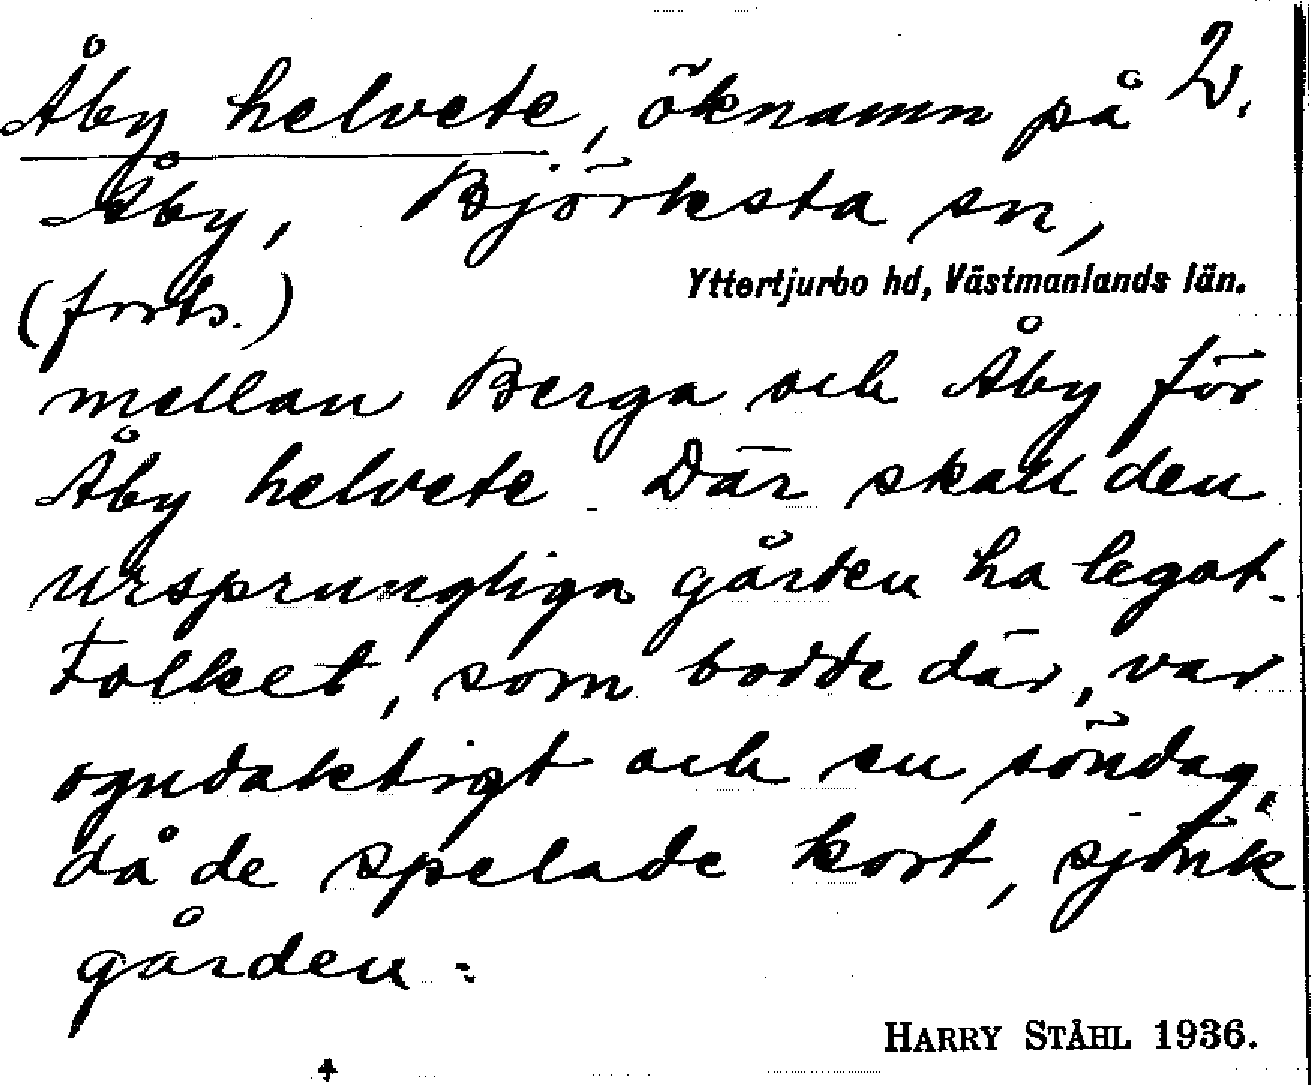 Åby helvete, öknamn på 2.
Åby, Björksta sn,
(forts.) Yttertjurbo hd, Västmanlands län.
mellan Berga och Åby för
Åby helvete. Där skall den
ursprungliga gården ha legat.
Folket, som bodde där, var
ogudaktigt och en söndag,
då de spelade kort, sjönk
gården.
HARRY STÅHL 1936.